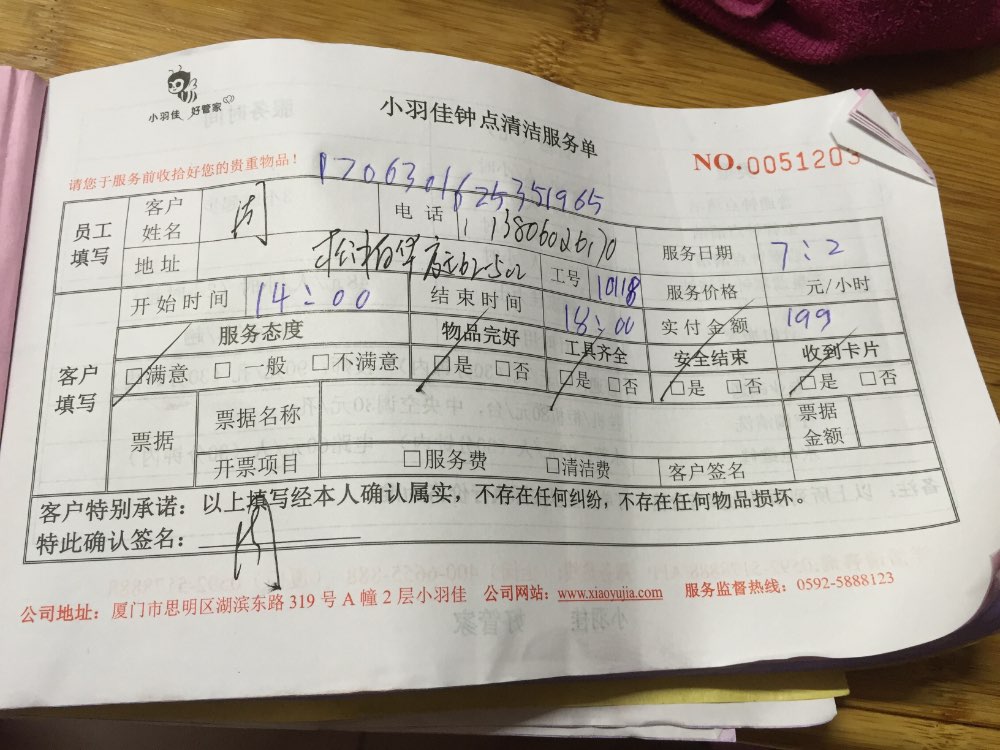 小羽佳 好管家
小羽佳钟点清洁服务单
NO.0051203
请您于服务前收拾好您的贵重物品！
1706301625351965
员工填写 客户姓名 周 电话 13806026170 服务日期 7:2
地址 工号 10118 服务价格 元/小时
客户填写 开始时间 14:00 结束时间 18:00 实付金额 199
服务态度 物品完好 工具齐全 安全结束 收到卡片
□满意 □一般 □不满意 □是 □否 □是 □否 □是 □否 □是 □否
票据 票据名称 票据金额
开票项目 □服务费 □清洁费 客户签名
客户特别承诺：以上填写经本人确认属实，不存在任何纠纷，不存在任何物品损坏。
特此确认签名：周
公司地址：厦门市思明区湖滨东路 319 号 A 幢 2 层小羽佳 公司网站：www.xiaoyujia.com 服务监督热线：0592-5888123